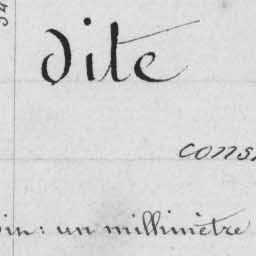 dite
cons
in : un millimètre